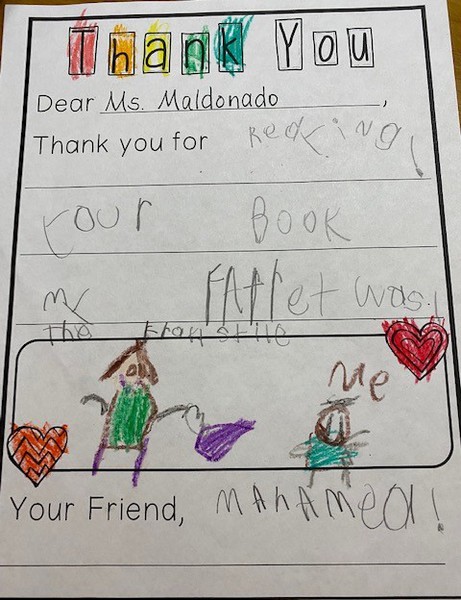 Thank You
Dear Ms. Maldonado,
Thank you for Reading
your Book
my FAFret was
The Fron stile
Me
Your Friend, MAhAMed!